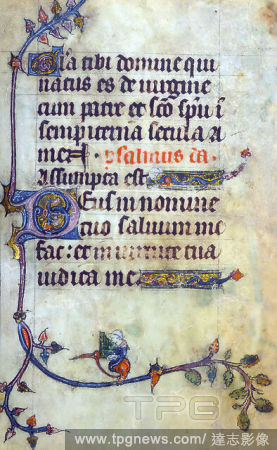 Gl'a tibi domine qui
natus es de uirgine
cum patre et sc̄o sp̄u ī
sempiterna secula a
men. psalmus dd.
Assumpta est
Deus in nomine
tuo saluum me
fac: et in uirtute tua
iudica me
TPG
www.tpgnews.com/ 達志影像